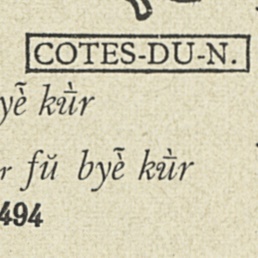 COTES-DU-N.
yè̃ kǜr
r fŭ byè̃ kǜr
494